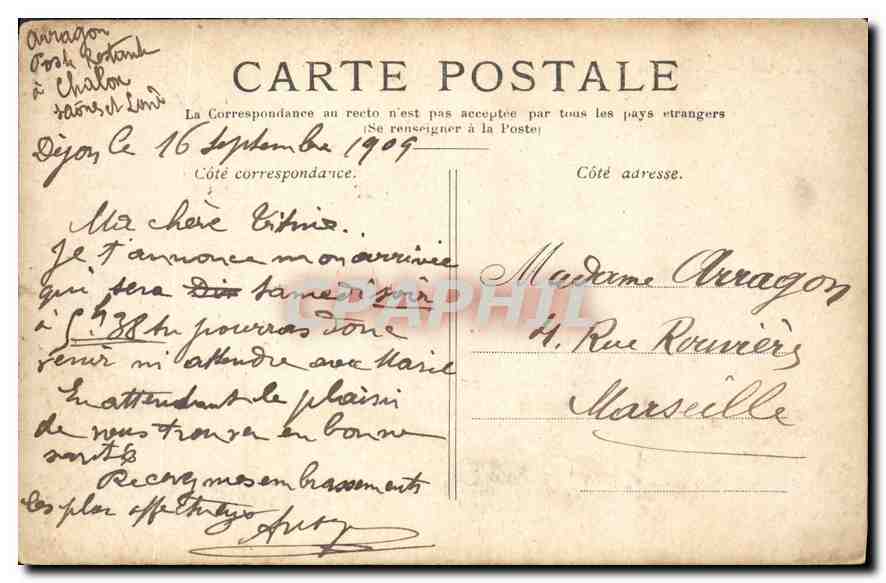 Arragon
Poste Restante
à Chalon
Saône et Loire
CARTE POSTALE
La Correspondance au recto n'est pas acceptée par tous les pays etrangers
(Se renseigner à la Poste)
Dijon le 16 Septembre 1909
Côté correspondance.
Côté adresse.
Ma chère
Je t'annonce mon arrivée
qui sera Samedi soir
à 5h38 tu pourras donc
venir m'attendre avec Marie
En attendant le plaisir
de vous trouver en bonne
santé
Recevez mes embrassements
les plus affectueux
Madame Arragon
4, Rue Rouvière
Marseille
CPAPHIL